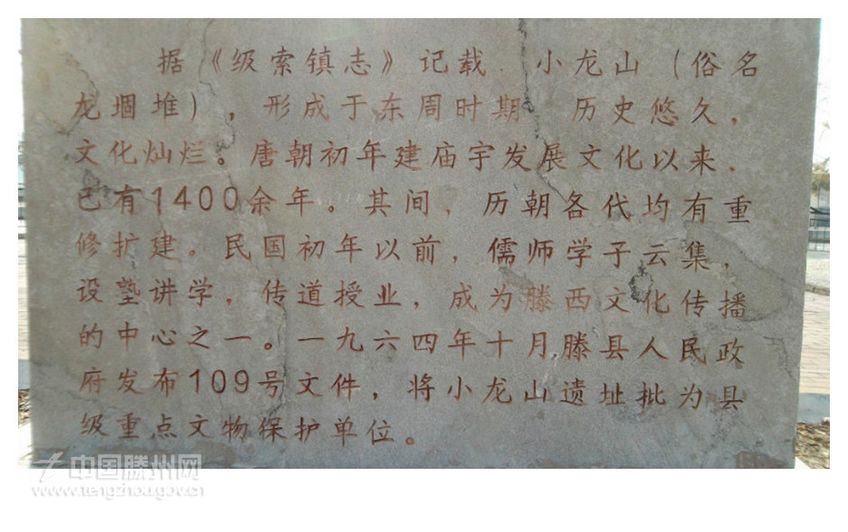 据《级索镇志》记载 小龙山（俗名
龙堌堆），形成于东周时期 历史悠久，
文化灿烂。唐朝初年建庙宇发展文化以来，
已有1400余年。其间，历朝各代均有重
修扩建。民国初年以前，儒师学子云集，
设塾讲学，传道授业，成为滕西文化传播
的中心之一。一九六四年十月滕县人民政
府发布109号文件，将小龙山遗址批为县
级重点文物保护单位。
中国滕州网
www.tengzhou.gov.cn